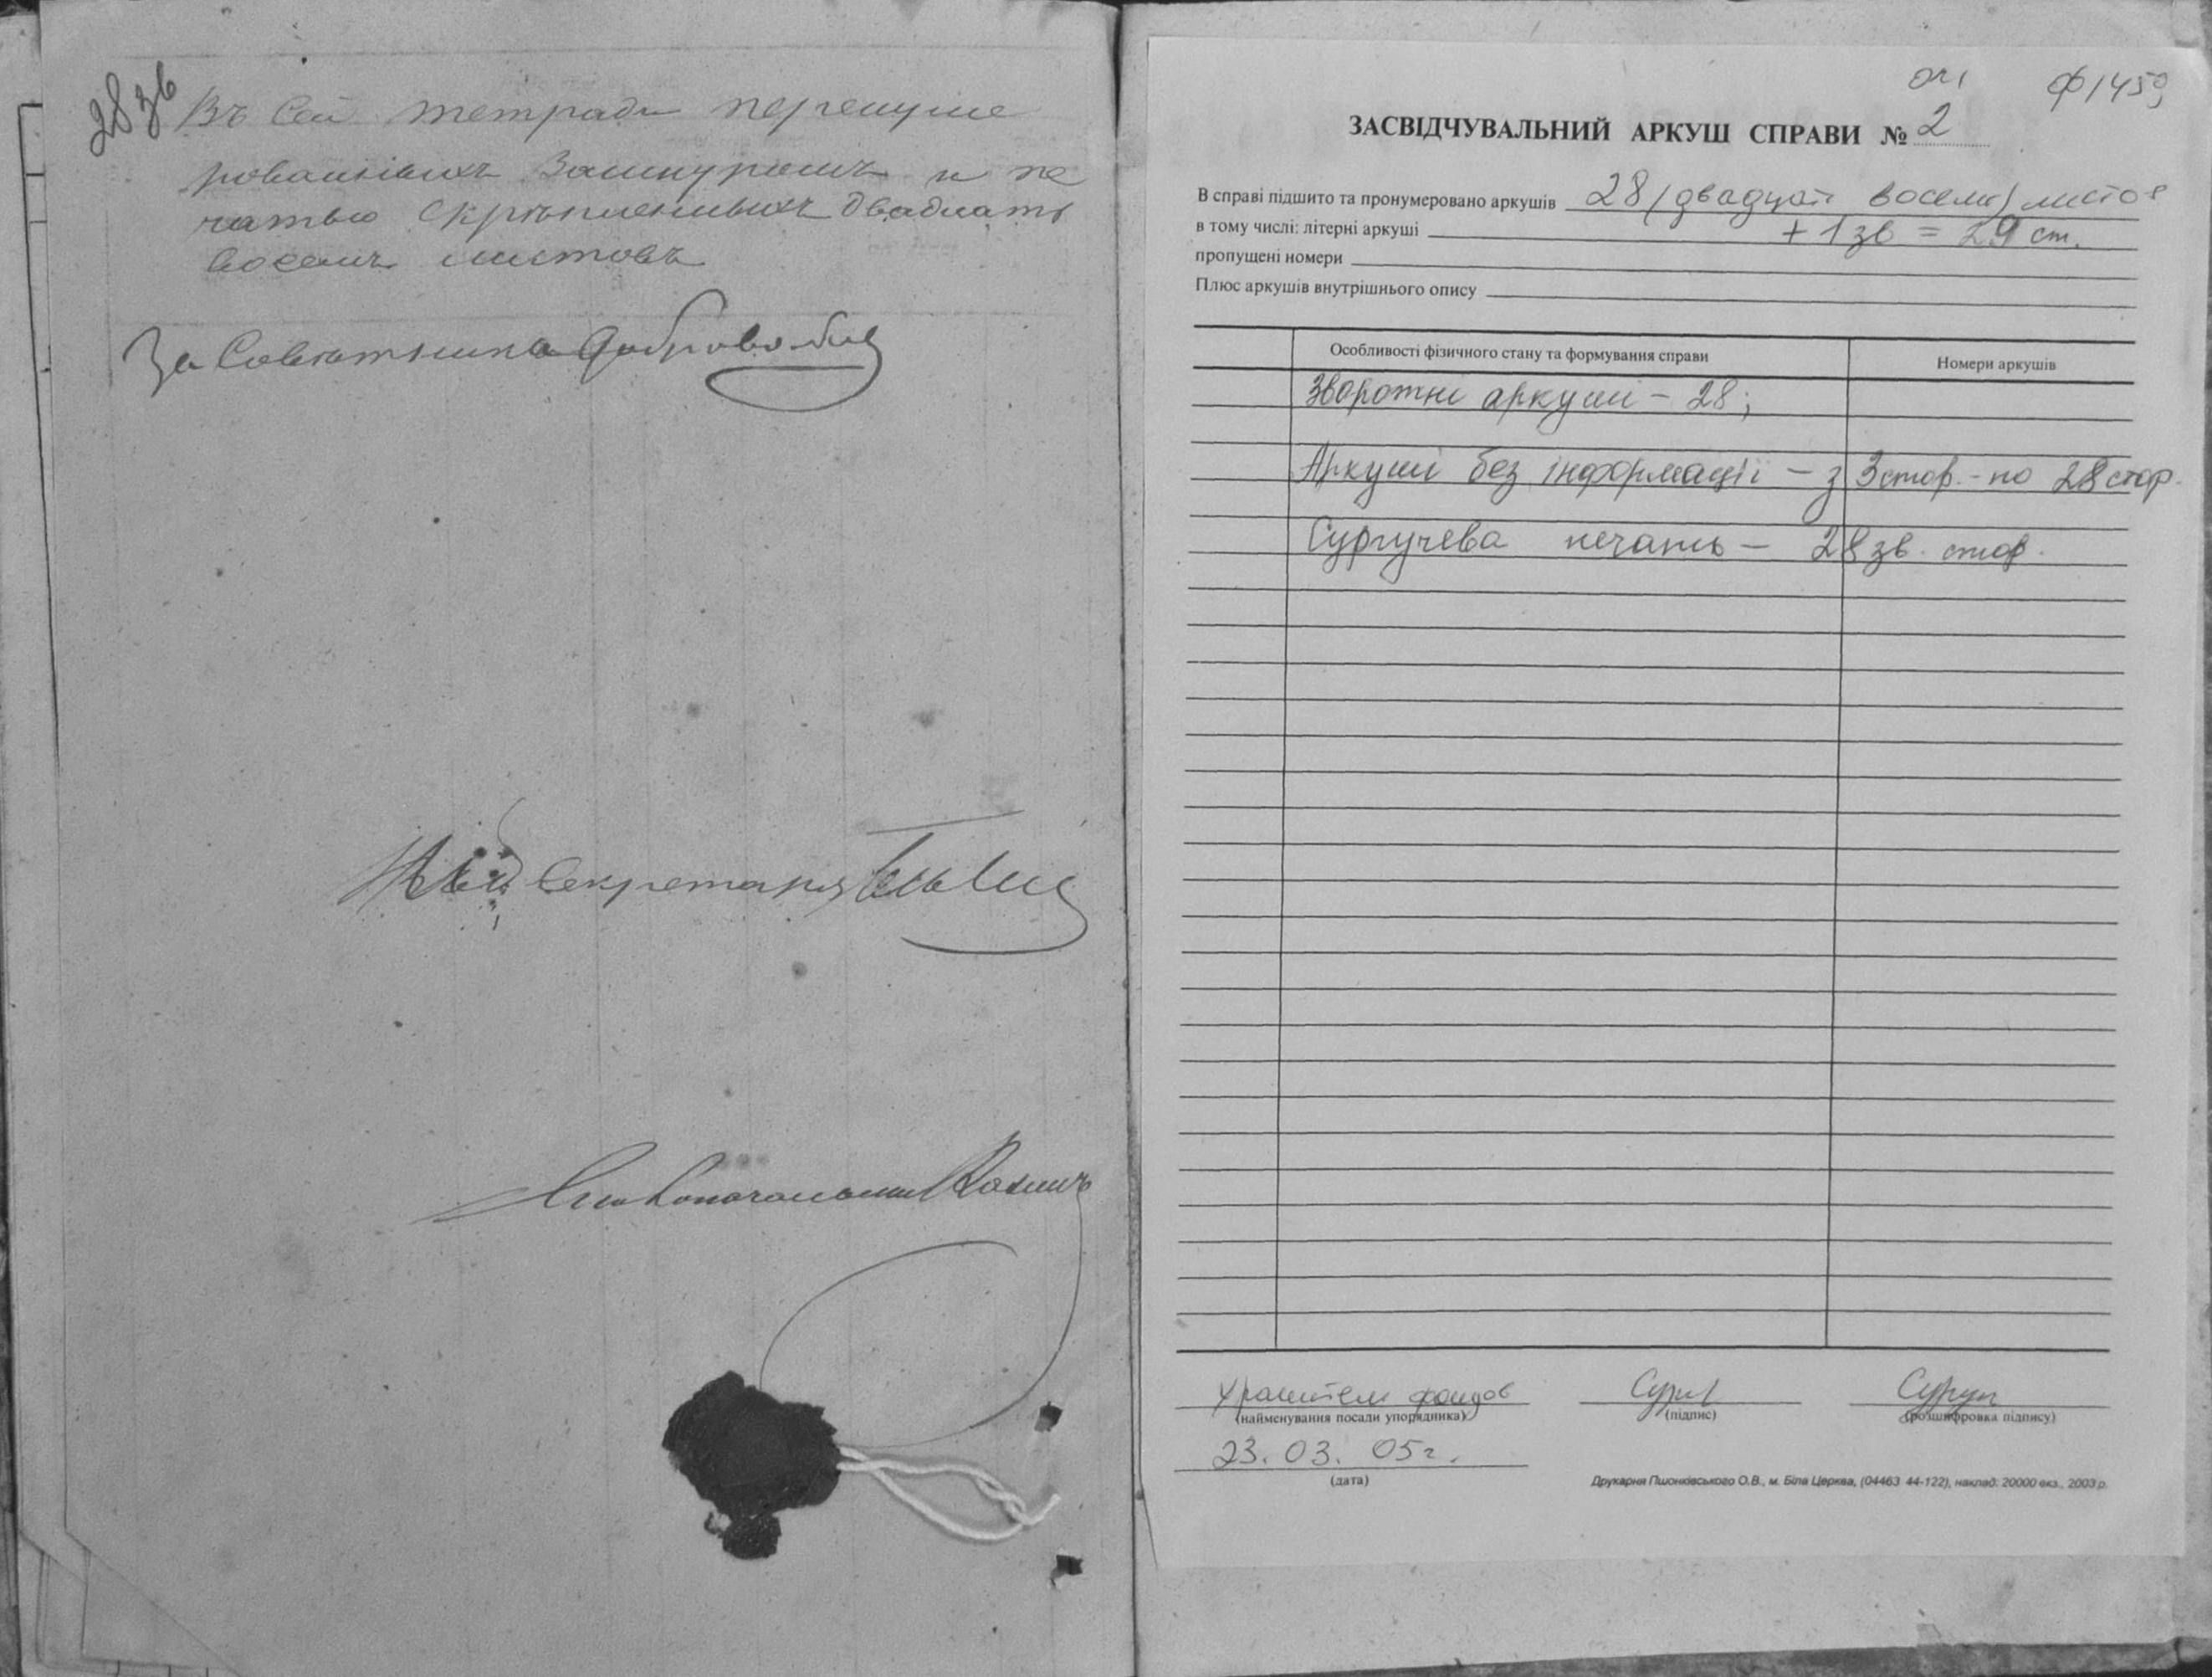 28 зв
Въ сей тетради перенуме
рованныхъ зашнурныхъ и пе
чатью скрѣпленныхъ двадцать
восемь листовъ
За Совѣтника
Секретаря
оп 1 Ф 1459
ЗАСВІДЧУВАЛЬНИЙ АРКУШ СПРАВИ № 2
В справі підшито та пронумеровано аркушів 28 /двадцать восемь/ листов
в тому числі: літерні аркуші + 1 зв = 29 ст.
пропущені номери
Плюс аркушів внутрішнього опису
Особливості фізичного стану та формування справи Номери аркушів
Зворотні аркуші – 28;
Аркуші без інформації – з 3 стор. – по 28 стор.
Сургучева печать – 28 зв. стор.
Хранитель фондов
(найменування посади упорядника) (підпис) (розшифровка підпису)
23.03.05г.
(дата)
Друкарня Пшонківського О.В., м. Біла Церква, (04463 44-122), наклад: 20000 екз., 2003 р.